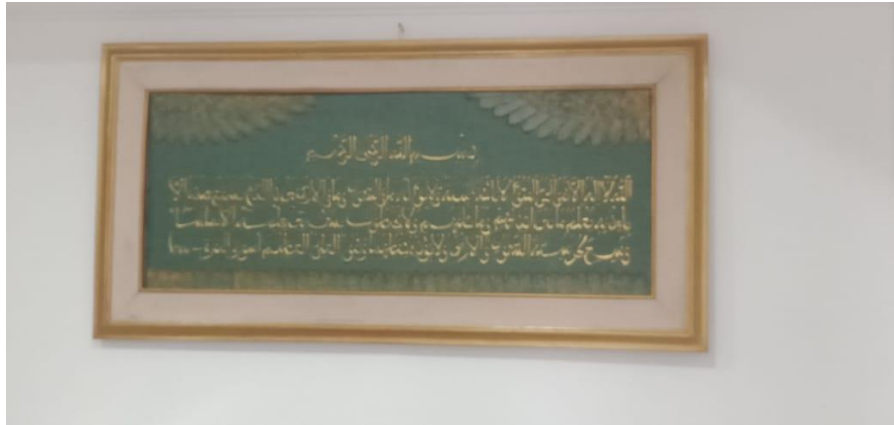 بسم الله الرحمن الرحيم
الله لا إله إلا هو الحي القيوم لا تأخذه سنة ولا نوم له ما في السموات وما في الأرض من ذا الذي يشفع عنده إلا
بإذنه يعلم ما بين أيديهم وما خلفهم ولا يحيطون بشيء من علمه إلا بما شاء
وسع كرسيه السموات والأرض ولا يؤده حفظهما وهو العلي العظيم